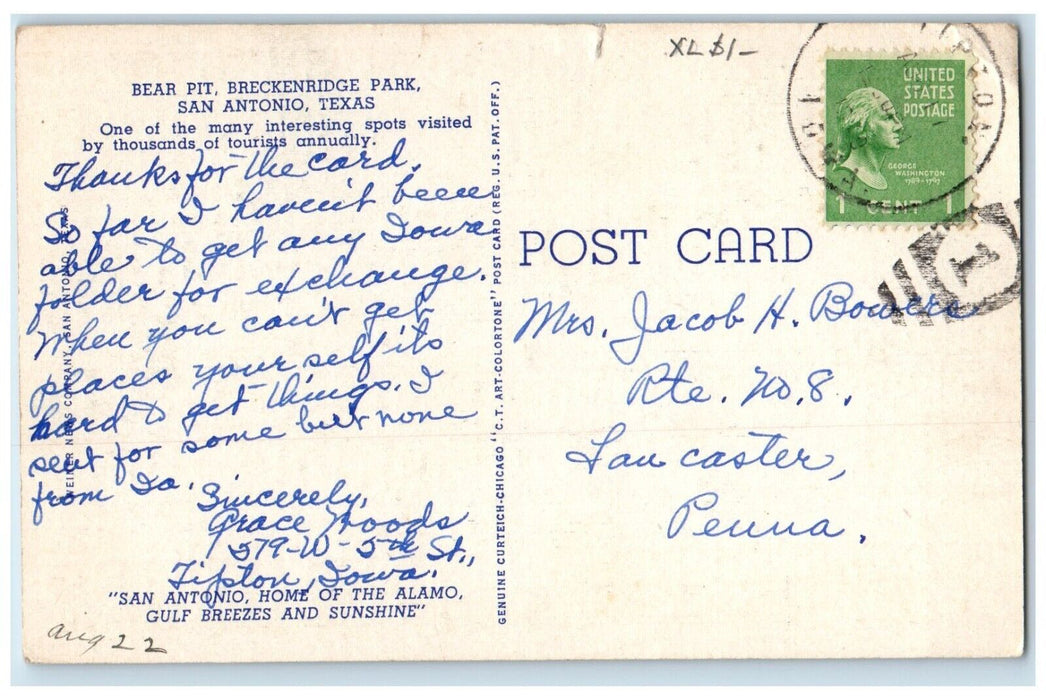 XL $1-
BEAR PIT, BRECKENRIDGE PARK,
SAN ANTONIO, TEXAS
One of the many interesting spots visited
by thousands of tourists annually.
Thanks for the card.
So far I haven't been
able to get any Iowa
folder for exchange.
When you can't get
places your self its
hard to get things. I
sent for some but none
from Ia.
Sincerely,
Grace Woods
579-W-5th St.,
Tipton, Iowa.
"SAN ANTONIO, HOME OF THE ALAMO,
GULF BREEZES AND SUNSHINE"
Aug 22
NEWS COMPANY, SAN ANTONIO,
GENUINE CURTEICH-CHICAGO "C.T. ART-COLORTONE" POST CARD (REG. U.S. PAT. OFF.)
POST CARD
Mrs. Jacob H. Bowers
Rte. No. 8.
Lancaster,
Penna.
UNITED
STATES
POSTAGE
GEORGE
WASHINGTON
1789-1797
1 CENT 1
1